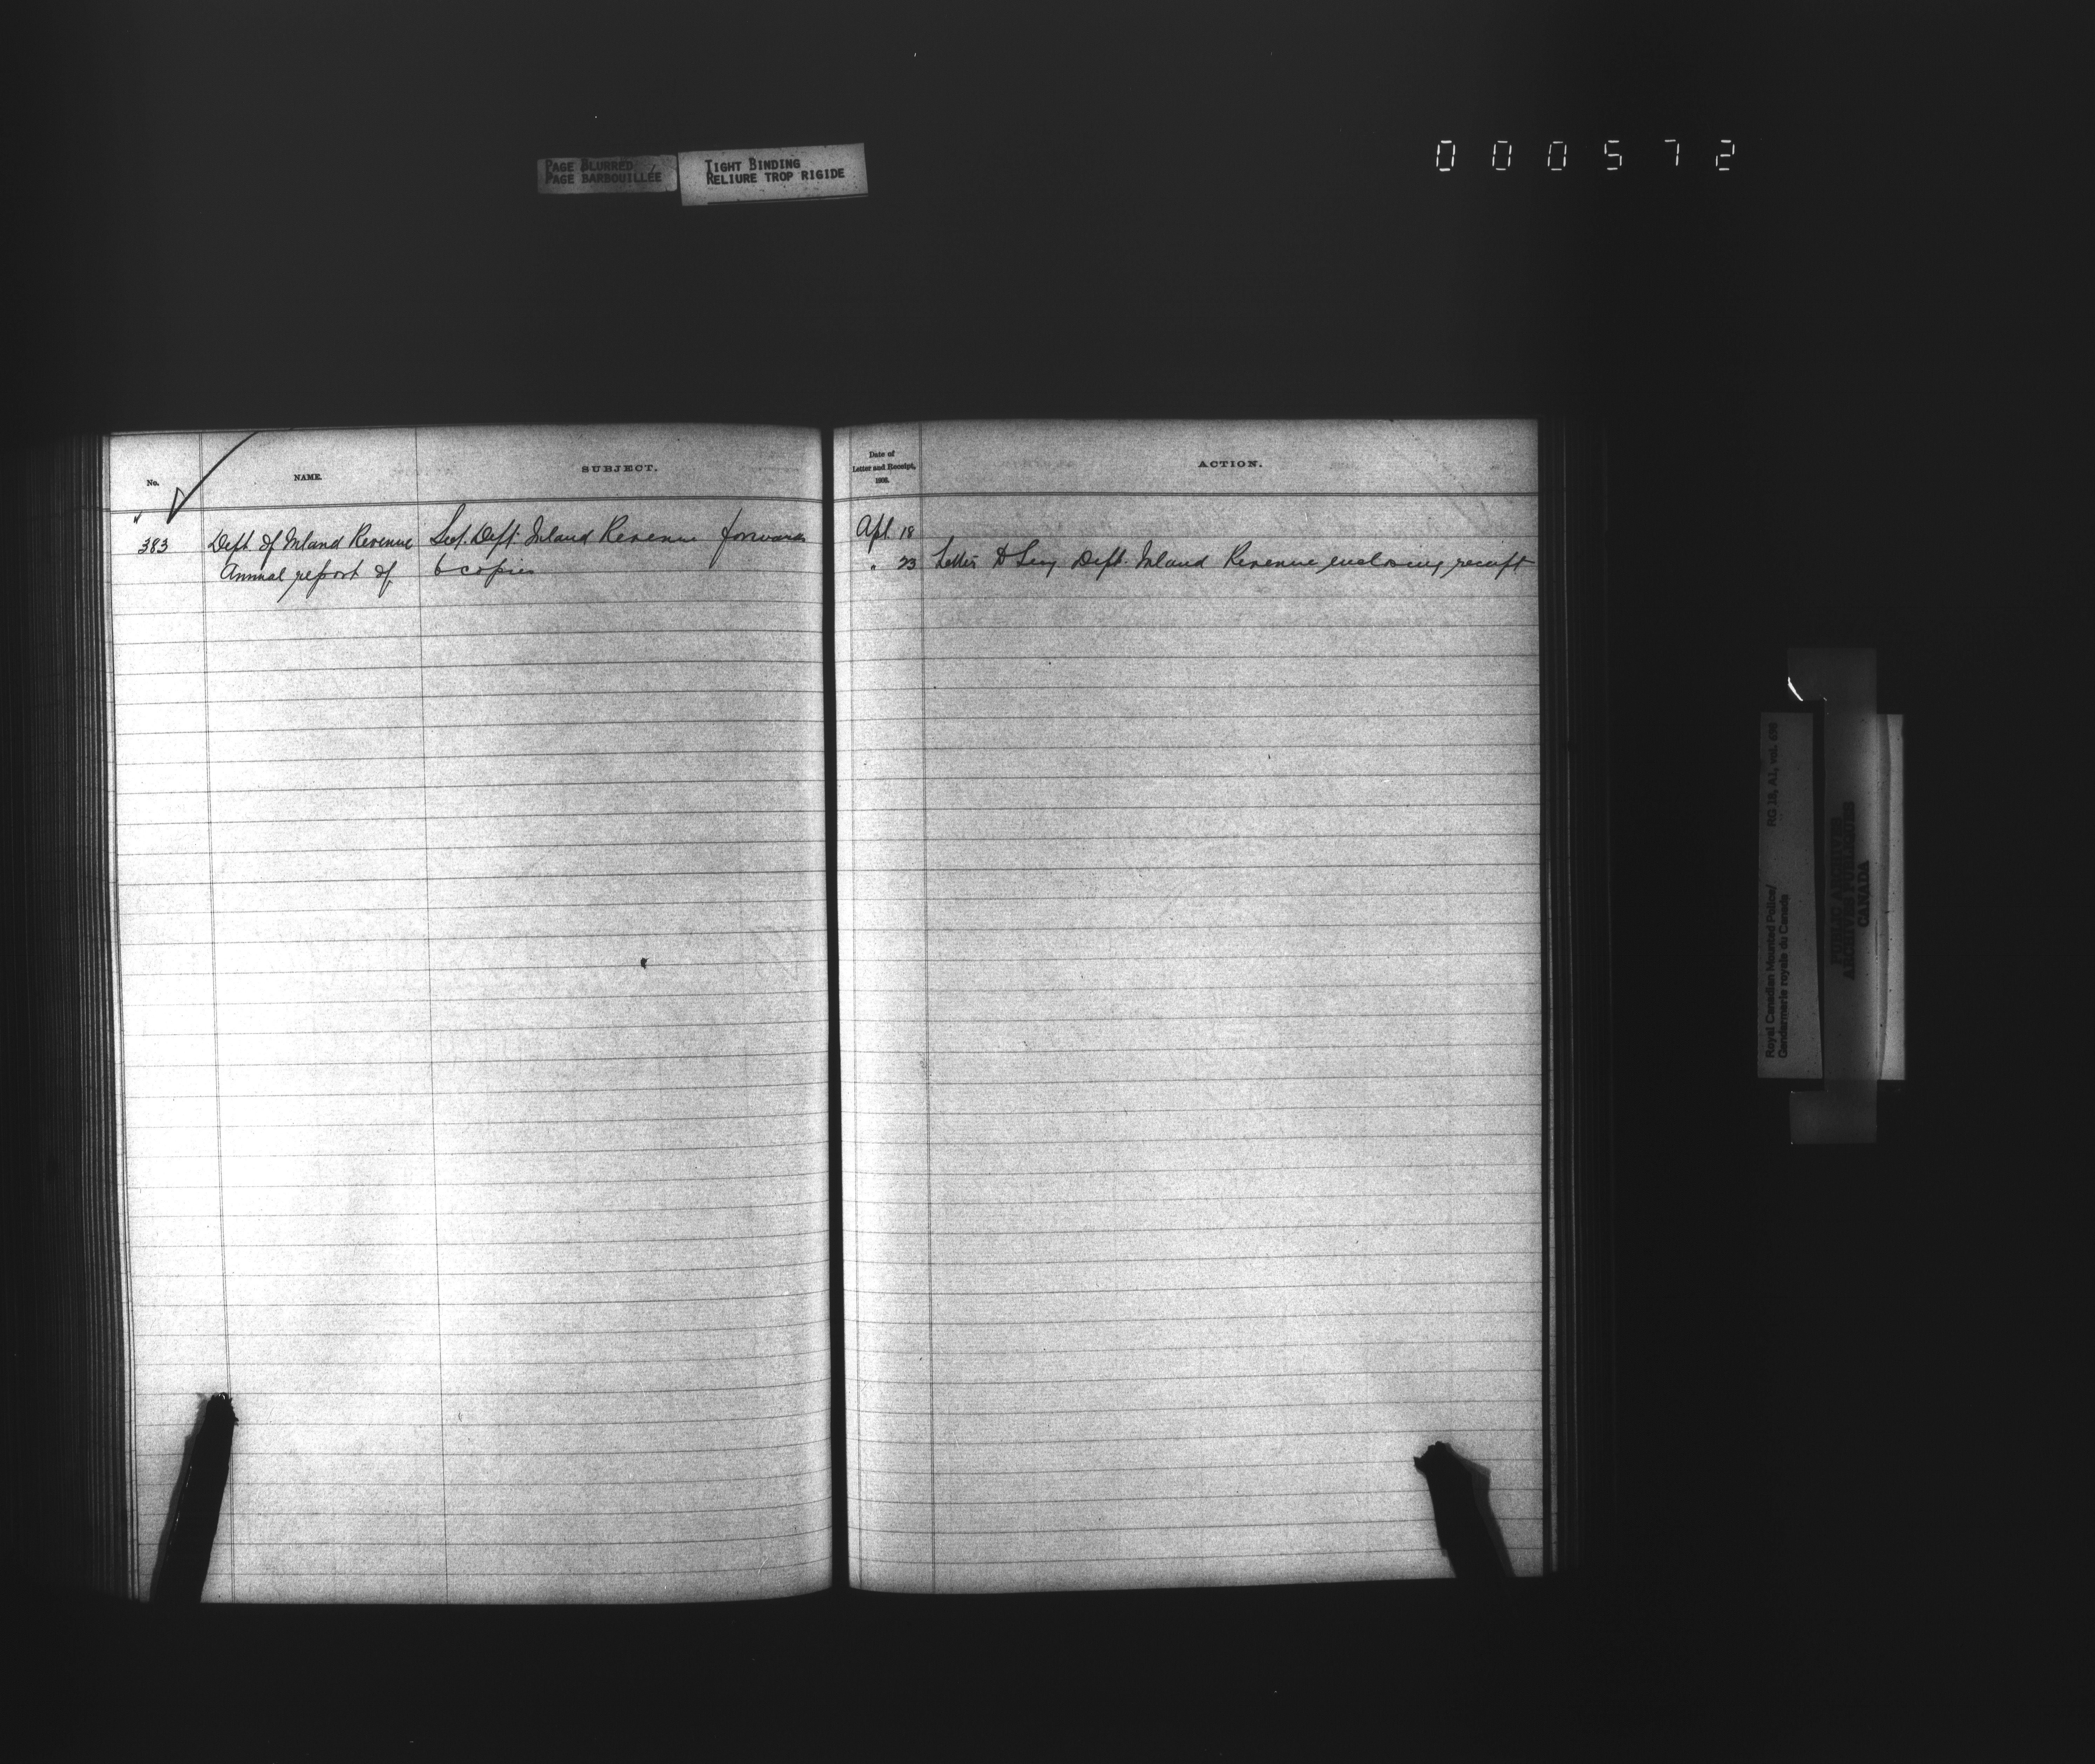 PAGE BLURRED
PAGE BARBOUILLÉE
TIGHT BINDING
RELIURE TROP RIGIDE
000572
No.
NAME.
SUBJECT.
Date of
Letter and Receipt,
ACTION.
"
383
Dept of Inland Revenue
Annual report of
Sect. Dept. Inland Revenue forwards
6 copies
Apl 18
" 23 Letter to Secy Dept. Inland Revenue enclosing receipt
Royal Canadian Mounted Police/
Gendarmerie royale du Canada
RG 18, A1, vol.
PUBLIC ARCHIVES
ARCHIVES PUBLIQUES
CANADA